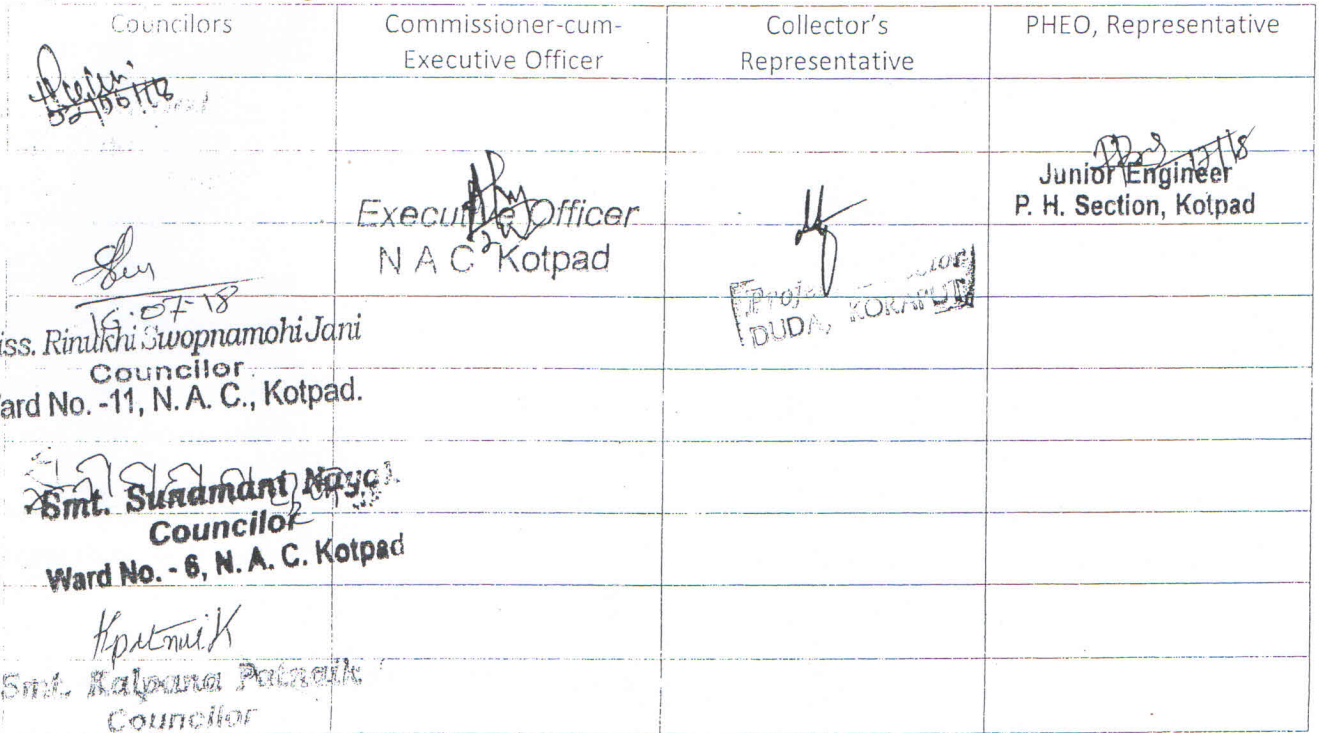 Councilors
Commissioner-cum-
Executive Officer
Collector's
Representative
PHEO, Representative
Executive Officer
N A C Kotpad
DUDA, KORAPUT
Junior Engineer
P. H. Section, Kotpad
16-07-18
iss. Rinukhi Swopnamohi Jani
Councilor
ard No. -11, N. A. C., Kotpad.
Smt. Sunamant
Councilor
Ward No. - 6, N. A. C. Kotpad
Smt. Kalpana Patnaik
Councilor